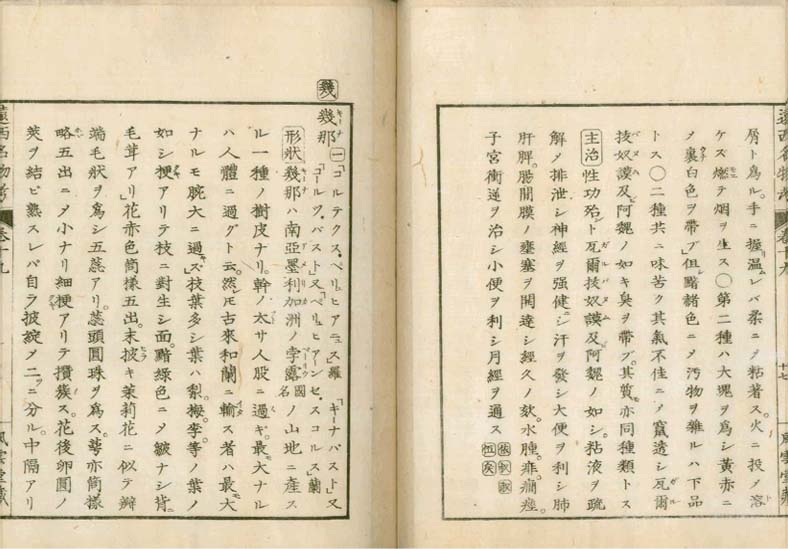 屑ト爲ル。手ニ握溫レバ柔ニメ粘着ス。火ニ投メ溶
ケズ燃テ烟ヲ生ス〇第二種ハ大塊ヲ爲シ黃赤ニ
メ裏白色ヲ帶ブ但黯赭色ニメ汚物ヲ雜ルハ下品
トス〇二種共ニ味苦ク其氣不佳ニメ竄透シ瓦爾
技奴謨及阿魏ノ如キ臭ヲ帶ブ。其質亦同種類トス
主治 性功殆ント瓦爾技奴謨及阿魏ノ如シ。粘液ヲ疏
解メ排泄シ神經ヲ强健ニシ汗ヲ發シ大便ヲ利シ肺
肝脾。腸間膜ノ壅塞ヲ開達シ經久ノ欬。水腫。痱。癇。痙。
子宮衝逆ヲ治シ小便ヲ利シ月經ヲ通ス
遠西名物考 卷十九
十七
風雲堂藏
幾
幾那 キーナ 一「コルテクス、ペリュヒアニュス」羅「キーナバスト」又
「コールツ、バスト」又「ペリュヒアーンセ、スコルス」蘭
形狀 幾那ハ南亞墨利加洲ノ孛露國名ノ山地ニ產ス
ル一種ノ樹皮ナリ。幹ノ太サ人股ニ過キ。最大ナル
ハ人體ニ過グト云。然ヒ古來和蘭ニ輸ス者ハ最大
ナルモ腕大ニ過ズ。枝葉多シ葉ハ梨。梅。李等ノ葉ノ
如シ梗アリテ枝ニ對生シ面。黯綠色ニメ皺ナシ背ニ
毛茸アリ」花赤色筒樣五出。末披キ茉莉花ニ似テ瓣
端毛狀ヲ爲シ五蕊アリ。蕊頭圓珠ヲ爲ス。萼亦筒樣
略五出ニメ小ナリ細梗アリテ攅簇ス。花後卵圓ノ
莢ヲ結ビ熟スレバ自ラ披綻メ二ツニ分ル。中隔アリ
遠西名物考 卷十九
風雲堂藏